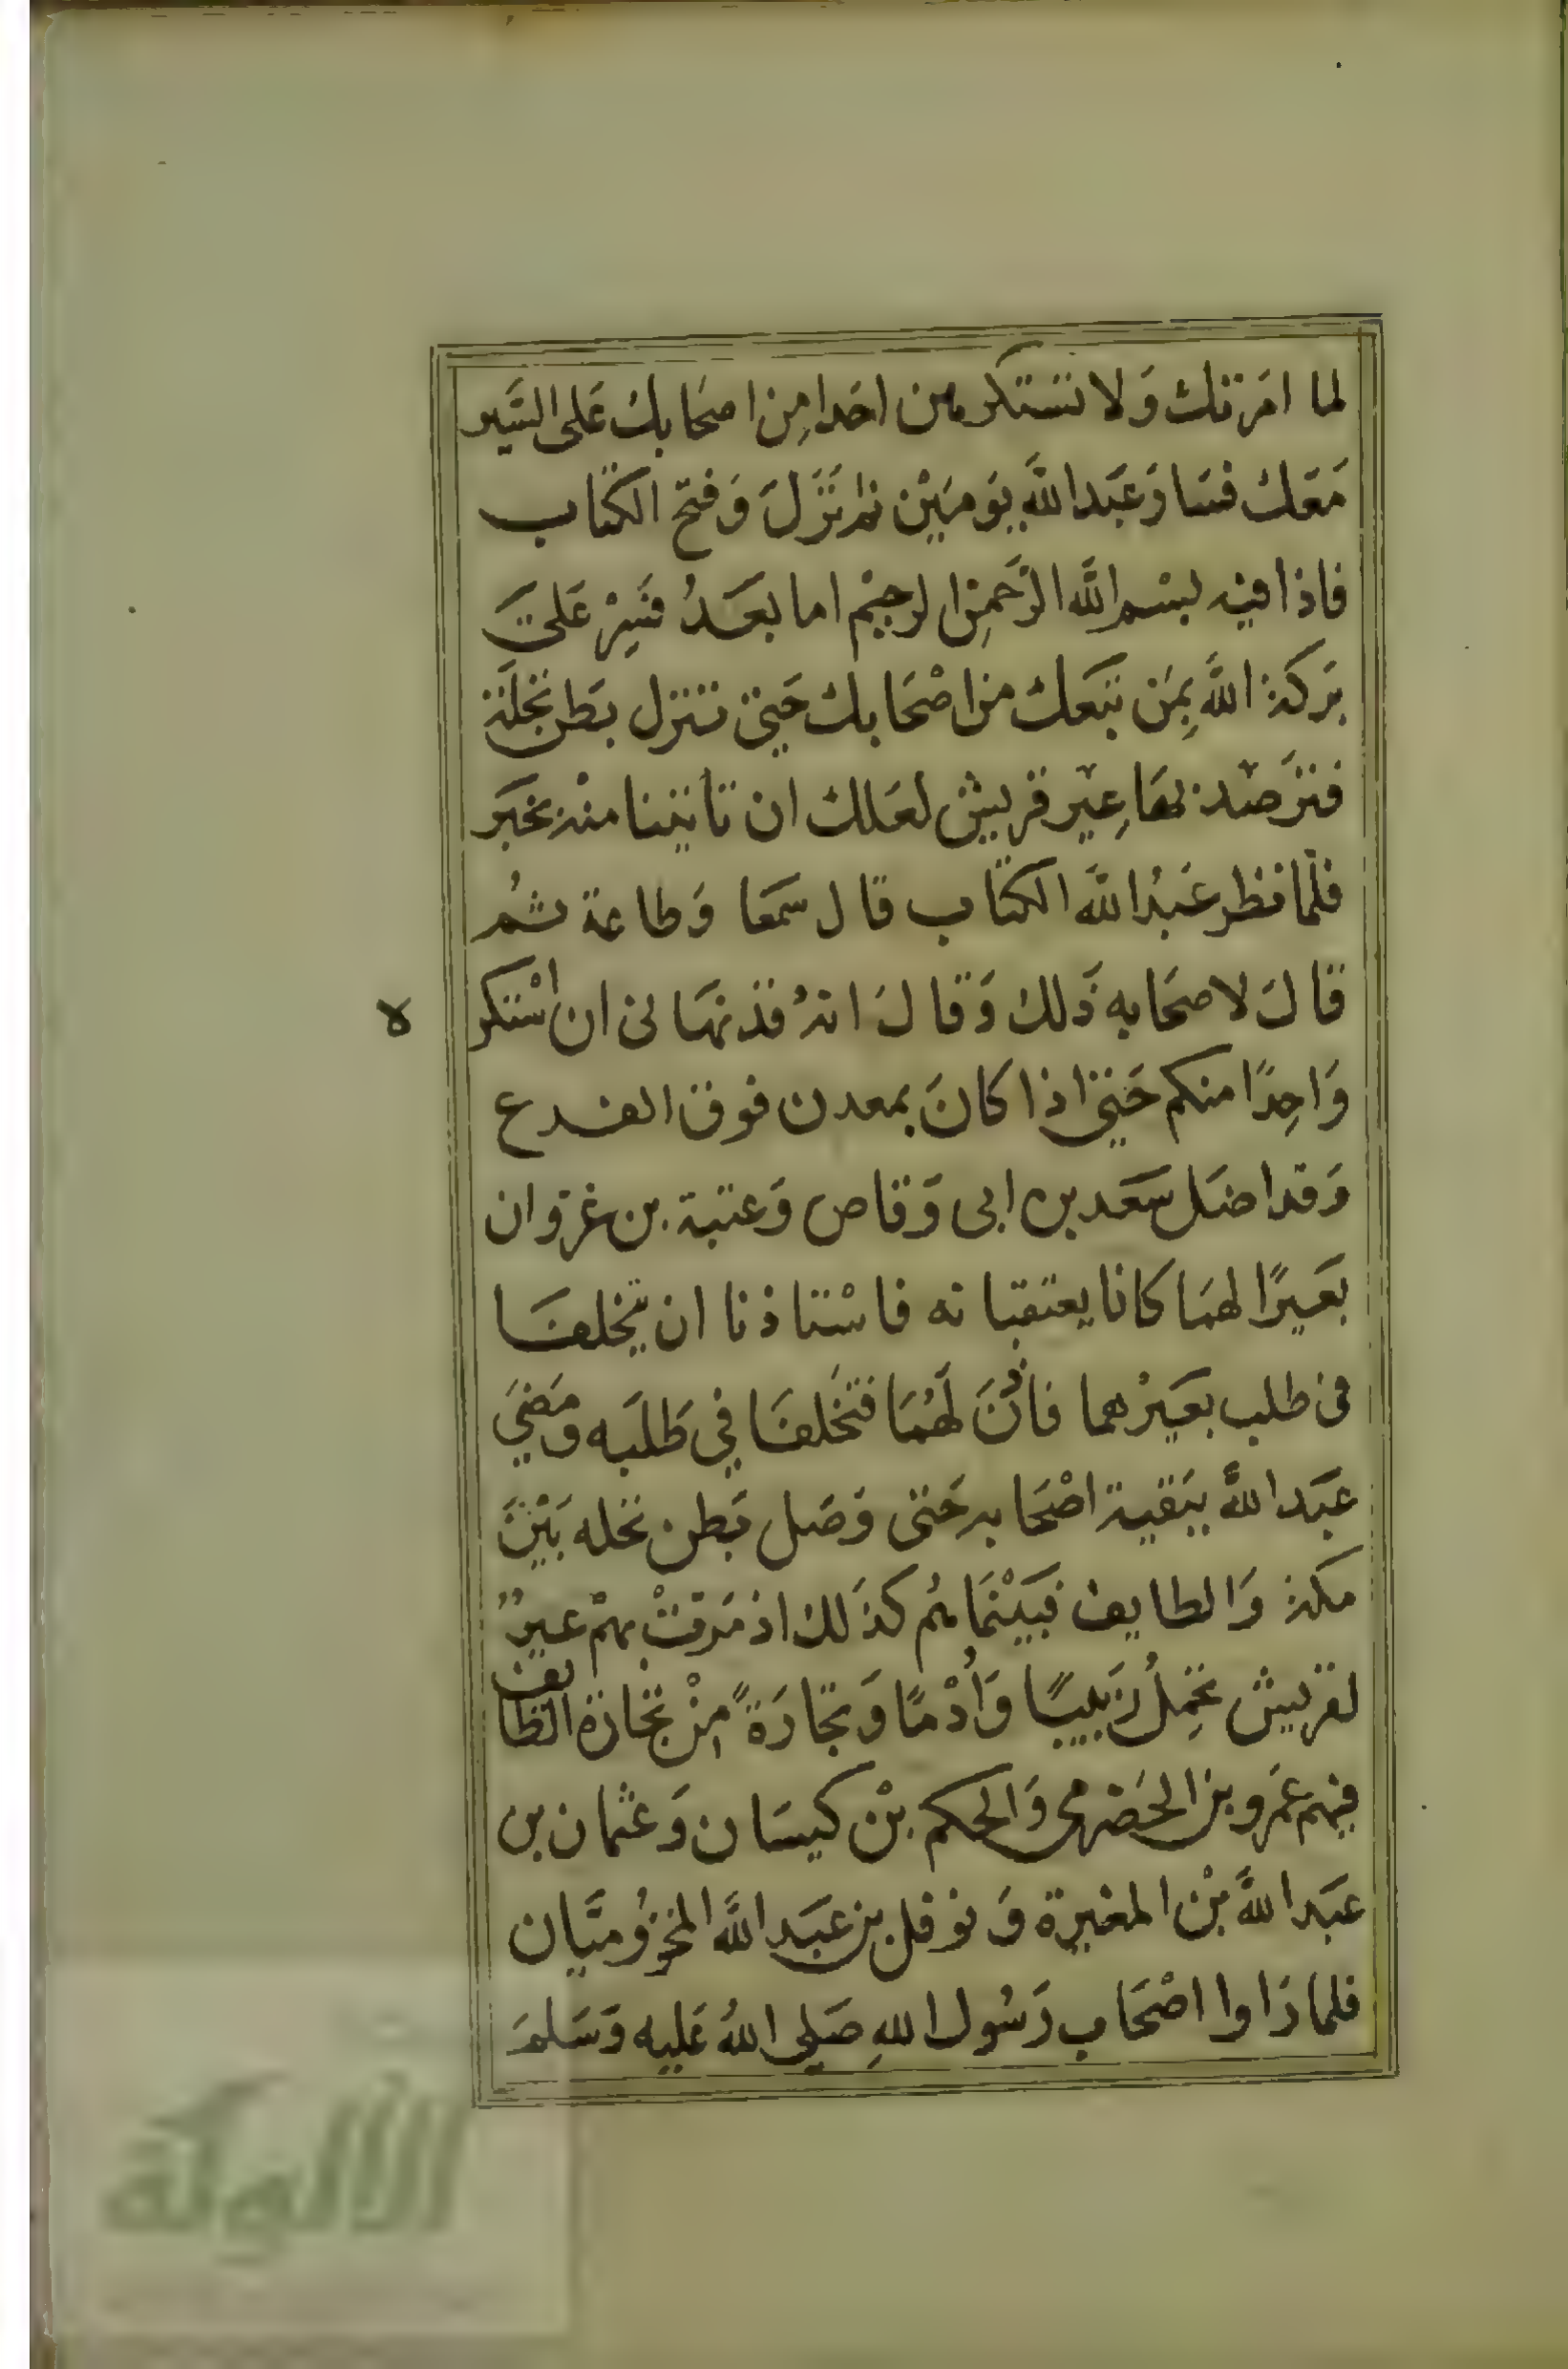 لما امَرتك وَلا تستكرهن احَدا مِن اصحَابك عَلى السَّير
مَعَك فسَارَ عَبَد اللَّه يَومَيْن ثم نَزَلَ وَفتح الكتاب
فاذا فيه بسْم اللَّه الرَّحَمِن الرحيْم اما بعَدُ فسِرْ عَلىَ
بَركة اللَّه بِمَن تبَعك من اصْحَابك حَتى تنزل بَطن نخلَة
فترَصْد بهَا عِيْر قريش لعَلك ان تاتينا منْه بخبَر
فلمّا نظر عَبْدُ اللَّه الكتاب قال سمَعا وَطاعة ثمُ
قال لاصحَابه ذَلك وَقالَ انهُ قد نهَانى ان اسْتكر
ه
وَاحِدًا منكم حَتى اذا كانَ بمعدن فوق الفرع
وَقد اضَل سَعَد بن ابى وَقاص وَعتبة بن غزوان
بعَيرًا لهمَا كانا يعتقبانه فاسْتاذنا ان يتخلفَا
فى طلب بعَيرْهما فاذنَ لَهُمَا فتخَلفَا في طَلبَه وَمَضيَ
عبَد اللَّه ببَقية اصْحَابه حَتى وَصَل بَطن نخله بَيْنَ
مكة وَالطايف فبَيْنمَا هُم كذَلك اذ مَرتْ بهمْ عيرٌ
لقريش تحَمِلُ زَبيبًا وَأُدْمًا وَتجَارَةً مِنْ تجَارَة الطايف
فيهم عَمرو بن الحَضرمى وَالحكم بْن كيسَان وَعثمان بن
عبَد اللَّه بْن المغيرة وَنوفل بن عبَد اللَّه المخزوُميَّان
فلما رَاوا اصْحَاب رَسُول اللهِ صَلى اللهُ عَليه وَسَلمَ
الألوكة